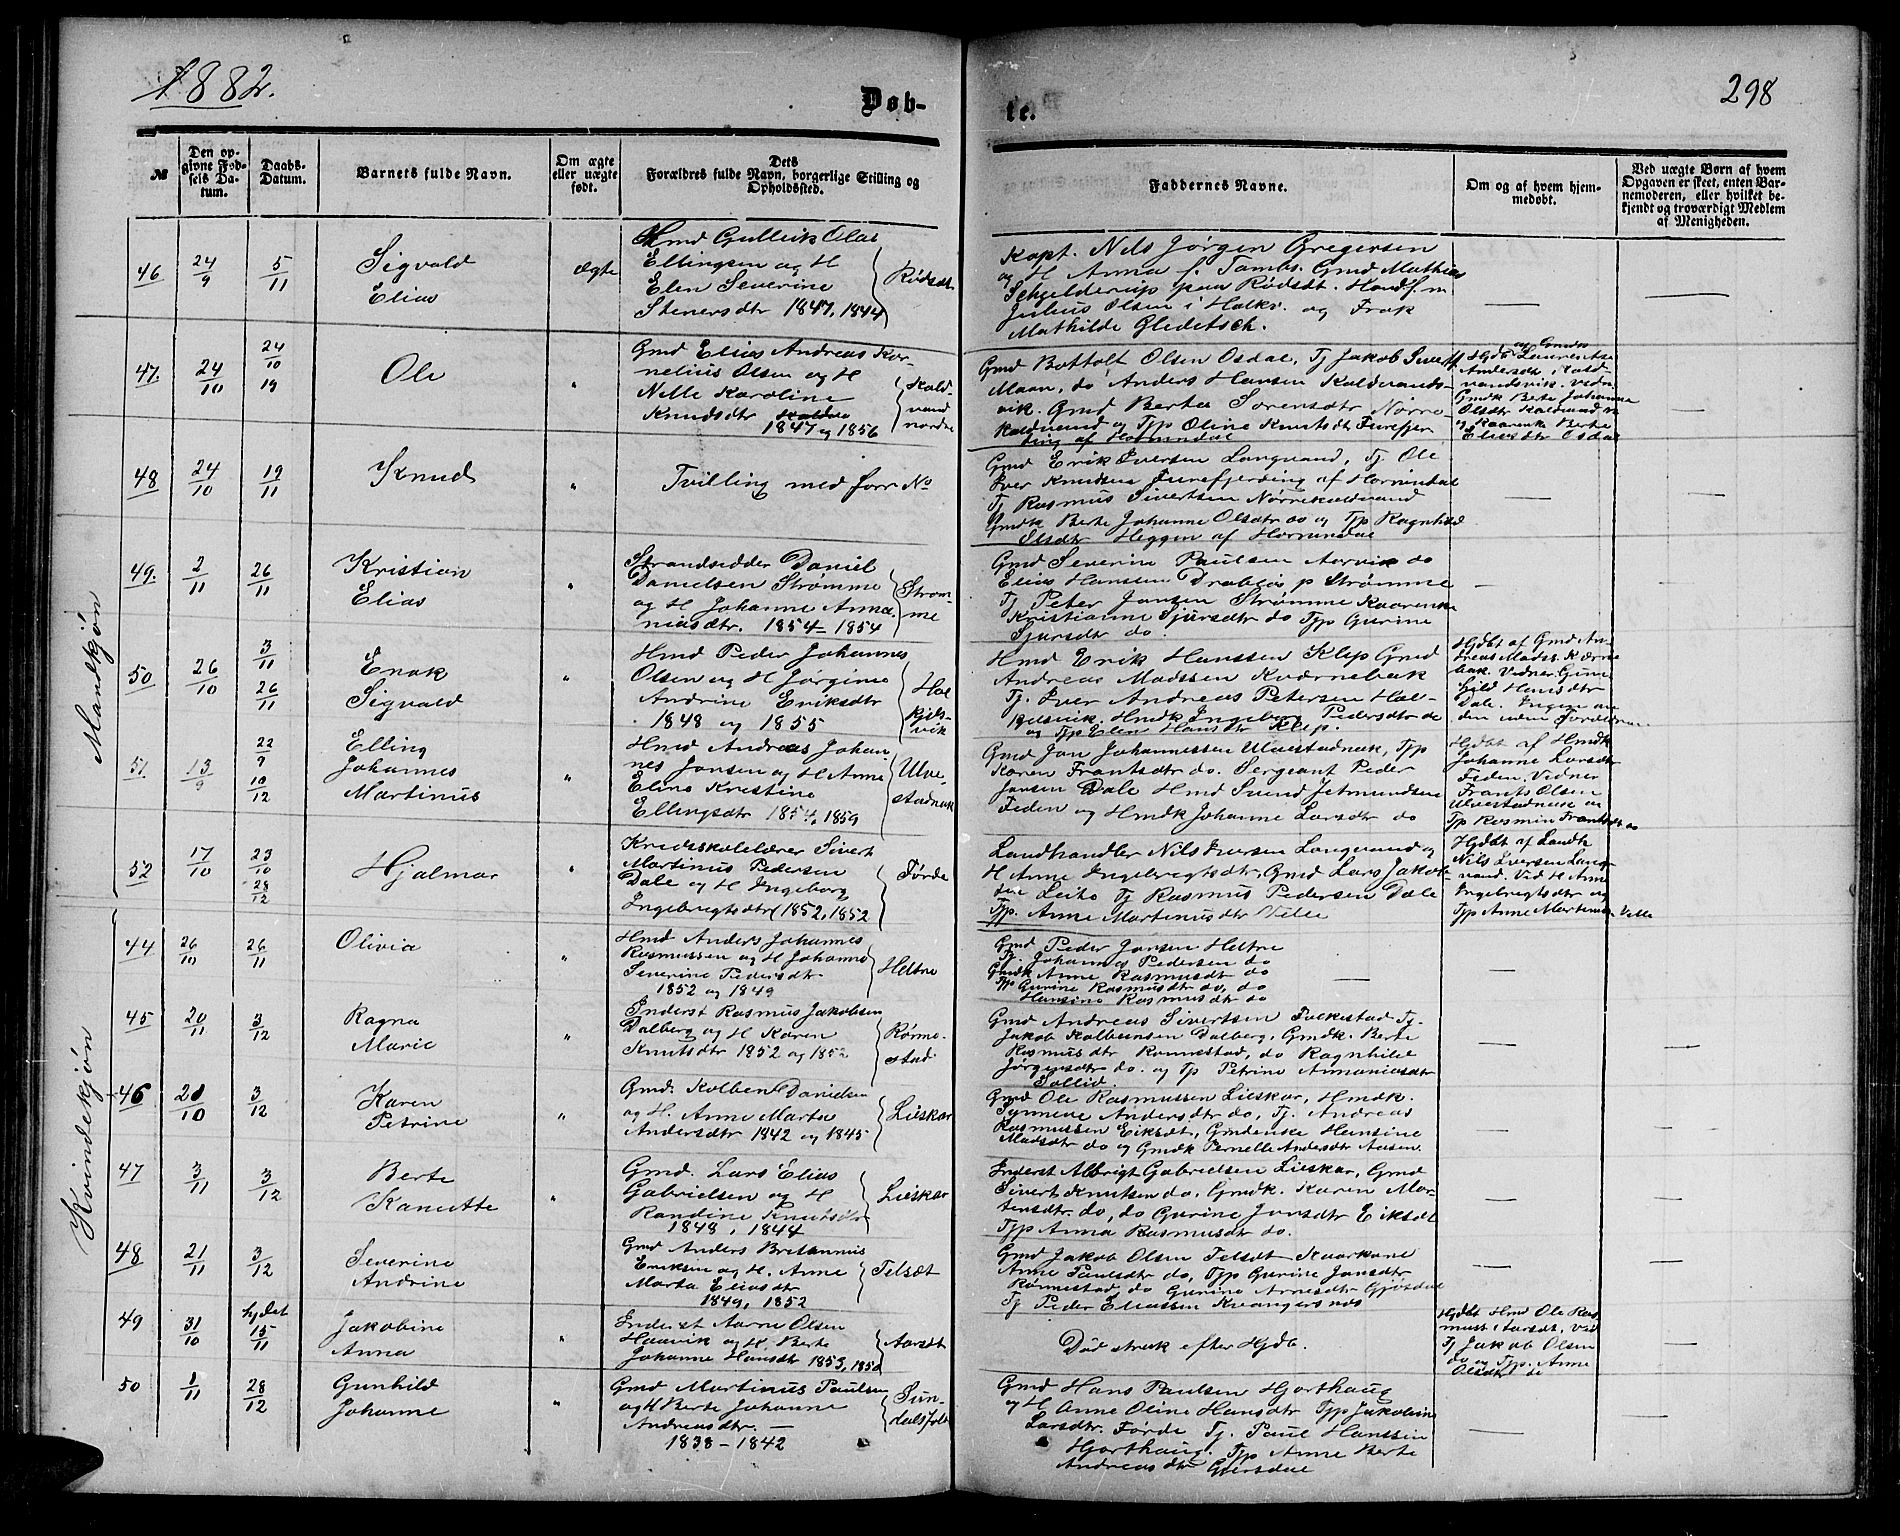 1882.
Døb-
te.
298
№
Den op-
givne Fød-
sels Da-
tum.
Daabs-
Datum.
Barnets fulde Navn.
Om ægte
eller uægte
født.
Dets
Forældres fulde Navn, borgerlige Stilling og
Opholdssted.
Faddernes Navne.
Om og af hvem hjem-
medøbt.
Ved uægte Børn af hvem
Opgaven er skeet, enten Bar-
nemoderen, eller hvilket be-
kjendt og troværdigt Medlem
af Menigheden.
Mandkjøn
46 24/9 5/11 Sigvald
Elias
ægte
Hmd Gullik Olai
Ellingsen og H
Elen Severine
Stenersdtr 1847, 1844
Rødsdt
Kapt. Nils Jørgen Gregersen
og H Anna f. Tambs. Gmd Mathias
Schjelderup paa Rødsdt. Handl.m
Julius Olsen i Halkv. og Frøk
Mathilde Gleditsch.
47. 24/10 24/10 19 Ole "
Gmd Elias Andreas Kor-
nelius Olsen og H
Nille Karoline
Knudsdtr
1847 og 1856
Kold-
vand
nordre
Gmd Bottolf Olsen Osdal, Tj Jakob Sivert
Maan, do Anders Hansen Koldvands-
vik. Gmd Berta Sørensdtr Nørre
koldvand og Tjp Oline Knutsdt Furefjer
ding af Hornindal
og Gmdn
Hjdb. Laurentse
Andersdt i Kold-
vandsvik. Vidn.
Gmdk Berte Johanne
Olsdtr Koldvand n
og Kaarenke Berte
Eliasdtr Osdal
48 24/10 19/11 Knud "
Tvilling med forr No
Gmd Erik Iversen Langvand, Tj. Ole
Iver Knudsen Furefjerding af Hornindal
Tj Rasmus Sivertsen Nørrekoldvand
Gmdk Berte Johanne Olsdtr do og Tjp Ragnhild
Olsdtr Heggen af Hornindal
49. 2/11 26/11 Kristian
Elias
"
Strandsidder Daniel
Danielsen Strømme
og H Johanne Anna
niasdtr. 1854 – 1854
Strøm-
me
Gmd Severine Paulsen Aarvik do
Elias Hansen Drabløs p Strømme
Tj Peter Jansen Strømme Kaarenke
Kristianne Sjursdtr do Tjp Gurine
Sjursdtr do
50 26/10 3/11 26/11 Enok
Sigvald
"
Hmd Peder Johannes
Olsen og H Jørgine
Andrine Eriksdtr
1848 og 1855
Hal
kjels-
vik
Hmd Erik Hanssen Klep Gmd
Andreas Madssen Kvernebak
Tj. Iver Andreas Petersen Hal-
kelsvik. Hmdk Ingeborg Pedersdtr do
og Tjp Elen Hansdtr Klep.
Hjdbt af Gmd An-
dreas Mads. Kverne
bak. Vidner: Gun
hild Hansdtr
Dale. Ingen an
den uden Forældrene
51. 13/9 22/9 10/12 Elling
Johannes
Martinus
"
Hmd Andreas Johan
nes Jansen og H Anne
Eline Kristine
Ellingsdtr 1854, 1859
Ulve-
stadnak
Gmd Jon Johannessen Ulvestadnak, Tjp
Karen Frantsdtr do. Sergeant Peder
Jansen Dale Hmd Svend Jetmundsen
Feden og Hmdk Johanne Larsdtr do
Hjdbt af Hmdk
Johanne Larsdtr
Feden. Vidner
Frants Olsen
Ulvestadnak og
Tjp Rasmin Frantsdt do
52 17/10 23/10 28/12 Hjalmar "
Kredsskolelærer Sivert
Martinus Pedersen
Dale og H Ingeborg
Ingebregtsdtr 1852, 1852
Førde
Landhandler Nils Iversen Langvand og
H Anne Ingebregtsdtr, Gmd Lars Jakob-
sen Leite Tj Rasmus Pedersen Dale
Tjp. Anne Martinusdtr Velle
Hjdbt af Landh
Nils Iversen Lang-
vand. Vid H Anne
Ingebregtsdtr og
Tjp Anne Martinusd Velle
Kvindekjøn
44 26/10 26/11 Olivia "
Hmd Anders Johannes
Rasmussen og H Johanne
Severine Pedersdtr
1852 og 1849
Heltne
Gmd Peder Jansen Heltne
Tj. Johannes Pedersen do
Gmdk Anne Rasmusdtr do
Tjp Gurine Rasmusdtr do, do
Hansine Rasmusdtr do
45 20/11 3/12 Ragna
Marie
"
Inderst Rasmus Jakobsen
Dalberg og H Karen
Knutsdtr 1852 og 1852
Rønne-
stad
Gmd Andreas Sivertsen Folkestad Tj.
Jakob Kolbensen Dalberg, Gmdk. Berte
Rasmusdtr Rønnestad, do Ragnhild
Jørgensdtr do. og Tp Petrine Annaniasdtr
Sollid.
46 20/10 3/12 Karen
Petrine
"
Gmd. Kolben Danielsen
og H. Anne Marta
Andersdtr 1842 og 1845
Lieskar
Gmd Ole Rasmussen Lieskar, Hmdk.
Synneve Andersdtr do, Tj. Andreas
Rasmussen Eiksdt, Gmdenke Hansine
Madsdtr do og Gmdk Pernelle Andersdtr Aasen.
47 3/11 3/12 Berte
Kanutte
"
Gmd. Lars Elias
Gabrielsen og H
Randine Knutsdtr
1848, 1844
Lieskar
Inderst Albrigt Gabrielsen Lieskar, Gmd
Sivert Knutsen do, Gmdk. Karen Mar-
tensdtr. do, do Gurine Jansdtr Eiksdt
Tjp Anna Rasmusdtr do.
48 21/11 3/12 Severine
Andrine
Gmd Anders Britannus
Eriksen og H. Anne
Marta Eliasdtr
1849, 1852
Felsæt
Gmd Jakob Olsen Felsdt Kaarkone
Anne Paulsdtr do, Tjp Gurine Jansdtr
Rønnestad, do Gurine Arnesdtr Gjøsdal
Tj Peder Eliassen Kvangersnes
49 31/10 hjdbt 15/11 Jakobine
Anna
"
Inderst Aarne Olsen
Haavik og H. Berte
Johanne Hansdt 1853, 1850
Aarsdt
Død strak efter Hjdb.
Hjdbt Hmd Ole Ras
muss i Aarsdt. Vid
Tj Jakob Olsen
do og Tjp. Anne
Olsdtr do
50 1/11 28/12 Gunhild
Johanne
"
Gmd Martinus Paulsen
og H Berte Johanne
Andreasdtr. —
1838 – 1842
Sun-
dalsfolk
Gmd Hans Paulsen Hjorthaug
og H Anne Oline Hansdtr Tjp Jakobine
Larsdtr. Førde Tj. Paul Hanssen
Hjorthaug. Tjp Anne Berte
Andreasdtr Gjersdal